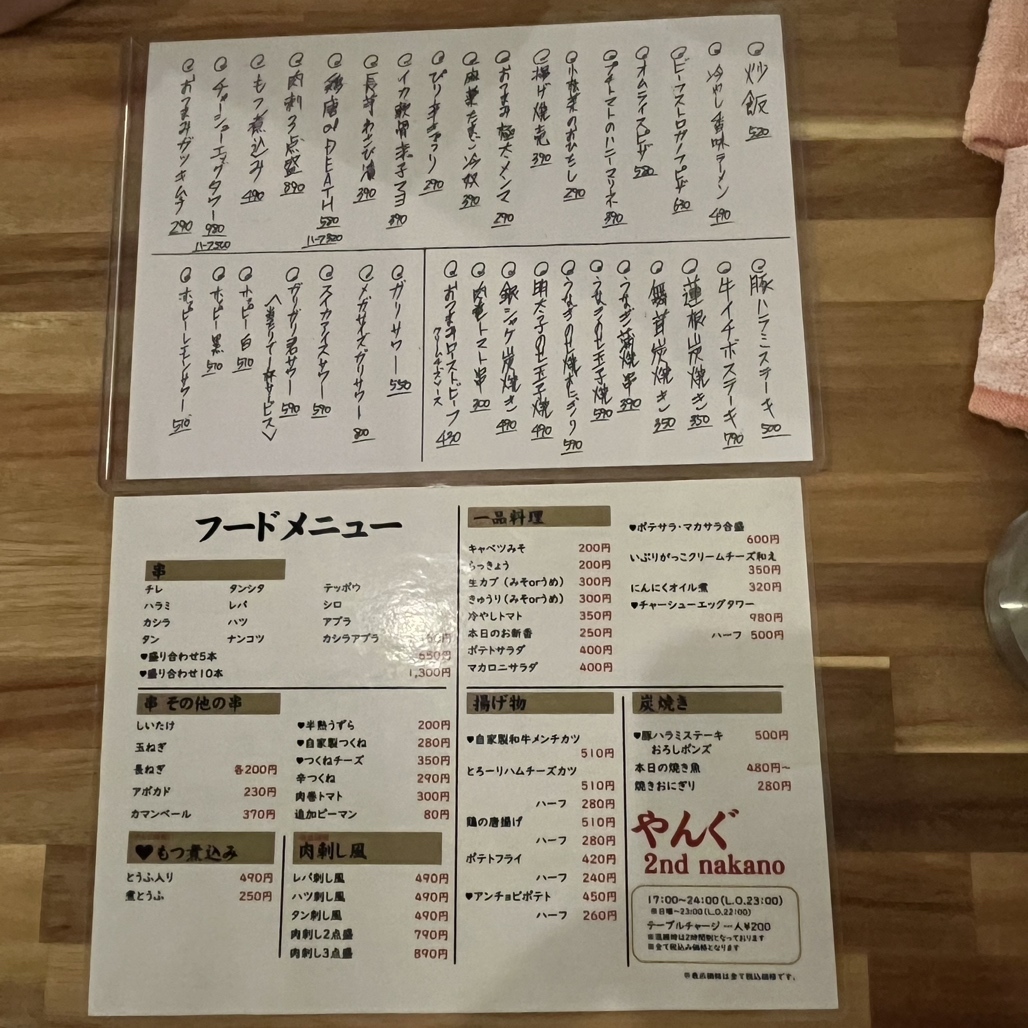 炒飯 520
冷やし香味ラーメン 490
ビーフストロガノフピザ 630
オムライスピザ 520
プチトマトのハニーマリネ 390
小松菜のおひたし 290
揚げ焼売 390
おつまみ極太メンマ 290
皮蛋たまご冷奴 390
ぴり辛きゅうり 290
イカ軟骨梨子マヨ 390
長芋わさび漬 390
鶏唐 of DEATH 580
ハーフ320
肉刺3点盛 890
もつ煮込み 490
チャーシューエッグタワー 980
ハーフ500
おつまみガツキムチ 290
豚ハラミステーキ 500
牛イチボステーキ 790
蓮根炭焼き 350
舞茸炭焼き 350
うなぎ蒲焼串 390
うなぎの玉子焼 590
うなぎの焼おにぎり 590
明太子の玉子焼 490
銀シャケ炭焼き 490
肉巻トマト串 300
おつまみローストビーフ 430
クリームチーズソース
ガリサワー 550
メガサイズガリサワー 800
スイカアイスサワー 590
ガリガリ君サワー 590
<当たりで一杯サービス>
ホッピー白 510
ホッピー黒 510
ホッピーレモンサワー 510
フードメニュー
串
チレ タンシタ テッポウ
ハラミ レバ シロ
カシラ ハツ アブラ
タン ナンコツ カシラアブラ
♥盛り合わせ5本 650円
♥盛り合わせ10本 1,300円
串 その他の串
しいたけ
玉ねぎ
長ねぎ 各200円
アボカド 230円
カマンベール 370円
♥半熟うずら 200円
♥自家製つくね 280円
♥つくねチーズ 350円
辛つくね 290円
肉巻トマト 300円
追加ピーマン 80円
♥もつ煮込み
とうふ入り 490円
煮とうふ 250円
肉刺し風
レバ刺し風 490円
ハツ刺し風 490円
タン刺し風 490円
肉刺し2点盛 790円
肉刺し3点盛 890円
一品料理
キャベツみそ 200円
らっきょう 200円
生カブ(みそorうめ) 300円
きゅうり(みそorうめ) 300円
冷やしトマト 350円
本日のお新香 250円
ポテトサラダ 400円
マカロニサラダ 400円
♥ポテサラ・マカサラ合盛
600円
いぶりがっこクリームチーズ和え
350円
にんにくオイル煮 320円
♥チャーシューエッグタワー
980円
ハーフ 500円
揚げ物
♥自家製和牛メンチカツ
510円
とろーりハムチーズカツ
510円
ハーフ 280円
鶏の唐揚げ 510円
ハーフ 280円
ポテトフライ 420円
ハーフ 240円
♥アンチョビポテト 450円
ハーフ 260円
炭焼き
♥豚ハラミステーキ 500円
おろしポンズ
本日の焼き魚 480円~
焼きおにぎり 280円
やんぐ
2nd nakano
17:00~24:00(L.O.23:00)
※日曜~23:00(L.O.22:00)
テーブルチャージ 一人¥200
※混雑時は2時間制となっております
※全て税込み価格となります
※表示価格は全て税込価格です。